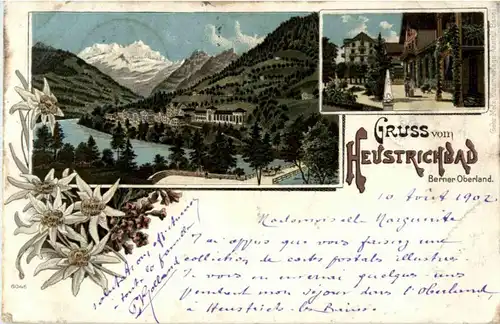 GRUSS vom
HEUSTRICHBAD
Berner Oberland.
10 Août 1902
Mademoiselle Marguerite
J'ai appris que vous faisiez une
collection de cartes postales illustrées
Je vous en enverrai quelques unes
pendant mon séjour dans l'Oberland
à Heustrich les Bains
Salutations affectueuses
à toute la famille
6046